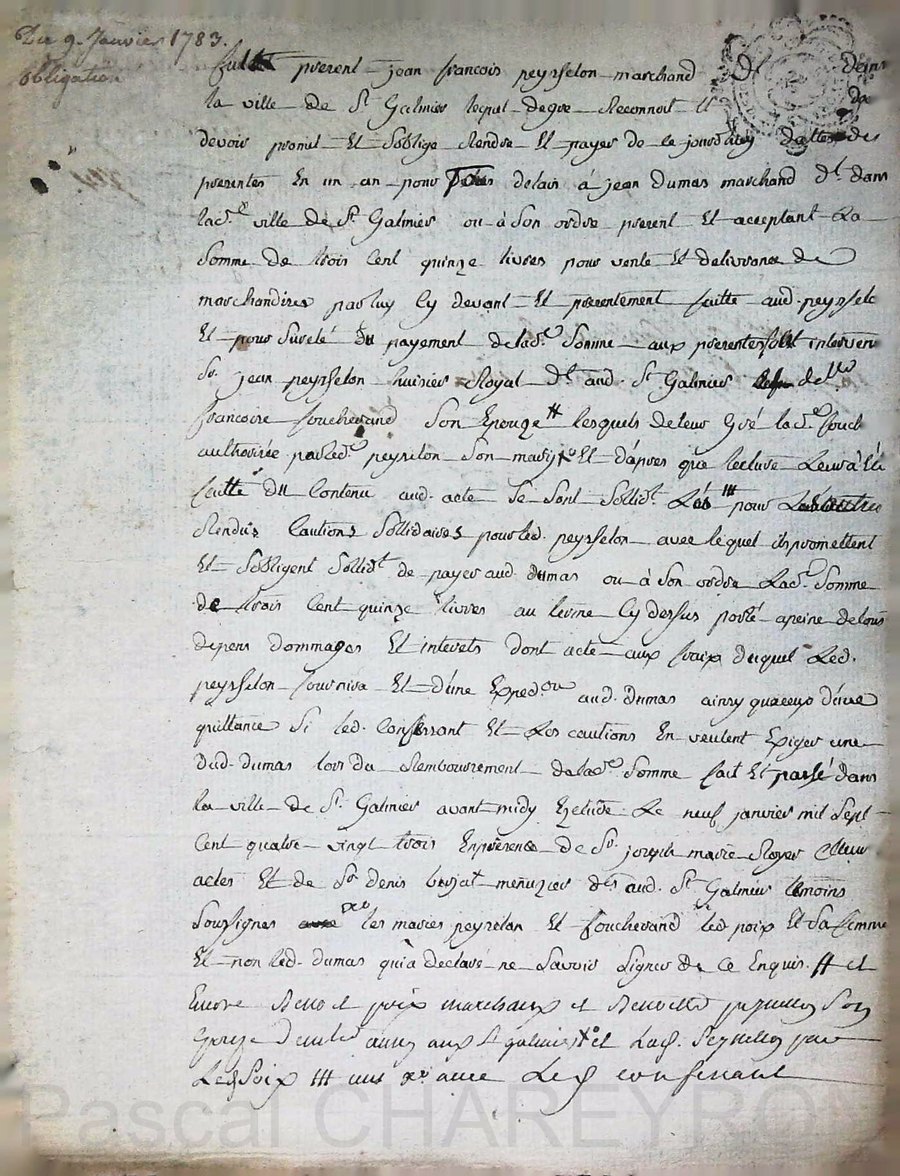 Du 9. Janvier 1783.
obligation
fut present jean francois peysselon marchand dt. dans
la ville de St. Galmier lequel de gre reconnoit et
devoir promet et soblige rendre et payer de ce jourdhuy dattes des
presentes en un an pour delais à jean dumas marchand dt. dans
lade. ville de St. Galmier ou à son ordre present et acceptant la
somme de trois cent quinze livres pour vente et delivrance de
marchandises par luy cy devant et presentement faitte aud. peysselo
et pour sureté du payement de lade. somme aux presentes intervenu
Sr. jean peysselon huissier Royal dt. aud. St. Galmier delle
francoise fouchevand son epouze # lesquels de leur gré lade. fouch
authorisée par led. peysselon son mary xo et dapres que lecture leur à eté
faitte du contenu aud. acte se sont sollidt. III pour
Rendus cautions sollidaires pour led. peysselon avec lequel ils promettent
et sobligent sollidt. de payer aud. dumas ou à son ordre lade. somme
de trois cent quinze livres au terme cy dessus porté a peine de tous
depens dommages et interets dont acte aux fraix duquel led.
peysselon fournira et dune expedon aud. dumas ainsy que
quittance si led. confessant et les cautions en veulent exiger une
dud. dumas lors du remboursement de lade. somme fait et passé dans
la ville de St. Galmier avant midy etude le neuf janvier mil sept
cent quatre vingt trois en presence de Sr. joseph marie Royer
actes et de Sr. denis menuzier dts aud. St. Galmier temoins
soussignes xo les maries peysselon et fouchevand led poix et sa femme
et non led. dumas qui a declaré ne savoir signer de ce enquis. # et
encore Benoet poix marchand et Benoette peysselon son
epouze aussy aux St galmier xo et lad. Peysselon par
Led Poix III xo avec Led confessant
Pascal CHAREYRON